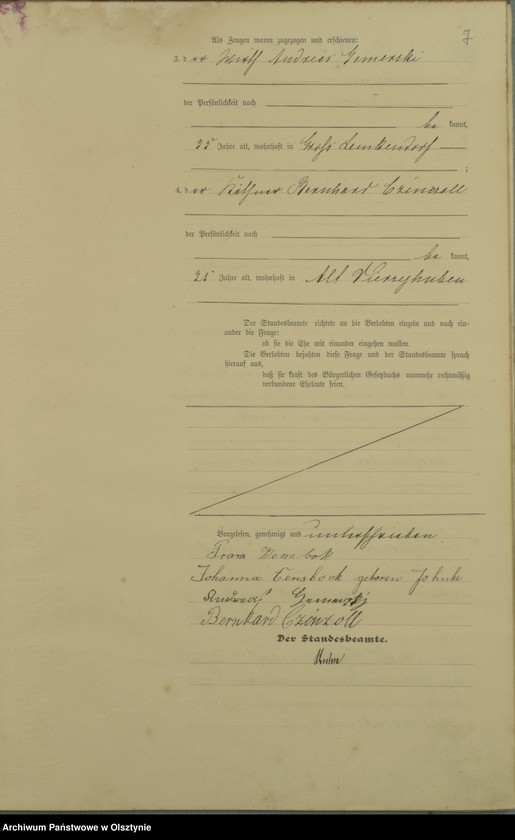 7
Als Zeugen waren zugezogen und erschienen:
3. d er Andreas
der Persönlichkeit nach
be kannt,
25 Jahre alt, wohnhaft in Groß Lemkendorf
;
4. d er Käthner Bernhard Czinczoll
der Persönlichkeit nach
be kannt,
Jahre alt, wohnhaft in Alt Vierzighuben
Der Standesbeamte richtete an die Verlobten einzeln und nach ein-
ander die Frage:
ob sie die Ehe mit einander eingehen wollen.
Die Verlobten bejahten diese Frage und der Standesbeamte sprach
hierauf aus,
daß sie kraft des Bürgerlichen Gesetzbuchs nunmehr rechtmäßig
verbundene Eheleute seien.
Vorgelesen, genehmigt und unterschrieben
Franz
Johanna geboren
Andreas
Bernhard Czinzoll
Der Standesbeamte.
Archiwum Państwowe w Olsztynie